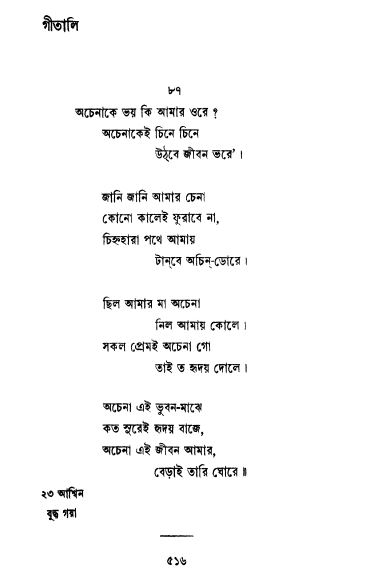 গীতালি
৮৭
অচেনাকে ভয় কি আমার ওরে ?
অচেনাকেই চিনে চিনে
উঠ্‌বে জীবন ভরে' ।
জানি জানি আমার চেনা
কোনো কালেই ফুরাবে না,
চিহ্নহারা পথে আমায়
টান্‌বে অচিন্-ডোরে ।
ছিল আমার মা অচেনা
নিল আমায় কোলে ।
সকল প্রেমই অচেনা গো
তাই ত হৃদয় দোলে ।
অচেনা এই ভুবন-মাঝে
কত সুরেই হৃদয় বাজে,
অচেনা এই জীবন আমার,
বেড়াই তারি ঘোরে ॥
২৩ আশ্বিন
বুদ্ধ গয়া
৫১৬